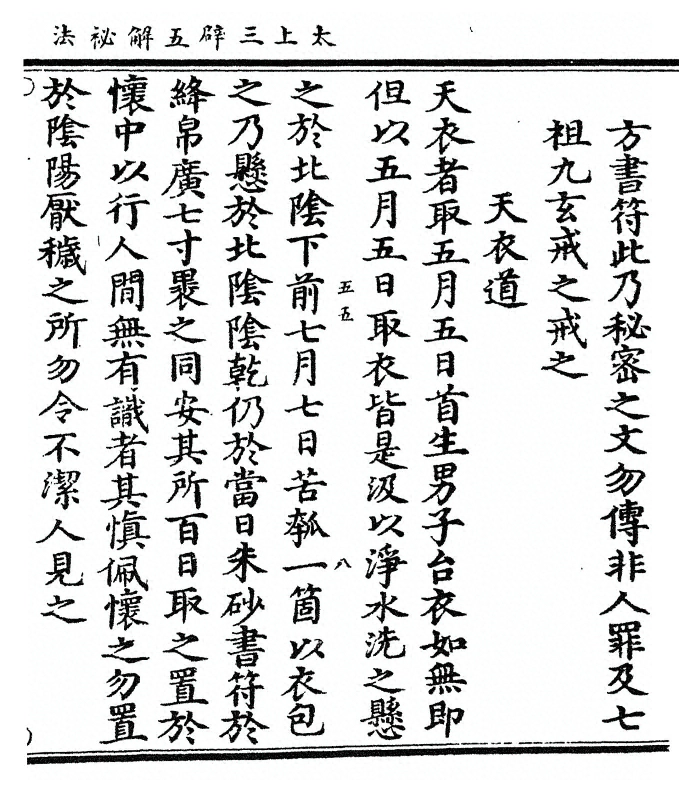 太上三辟五解祕法
方書符此乃秘密之文勿傳非人罪及七
祖九玄戒之戒之
天衣道
天衣者取五月五日首生男子台衣如無即
但以五月五日取衣皆是汲以淨水洗之懸
之於北陰下前七月七日苦瓠一箇以衣包
五五 八
之乃懸於北陰陰乾仍於當日朱砂書符於
絳帛廣七寸褁之同安其所百日取之置於
懷中以行人間無有識者其慎佩懷之勿置
於陰陽厭穢之所勿令不潔人見之